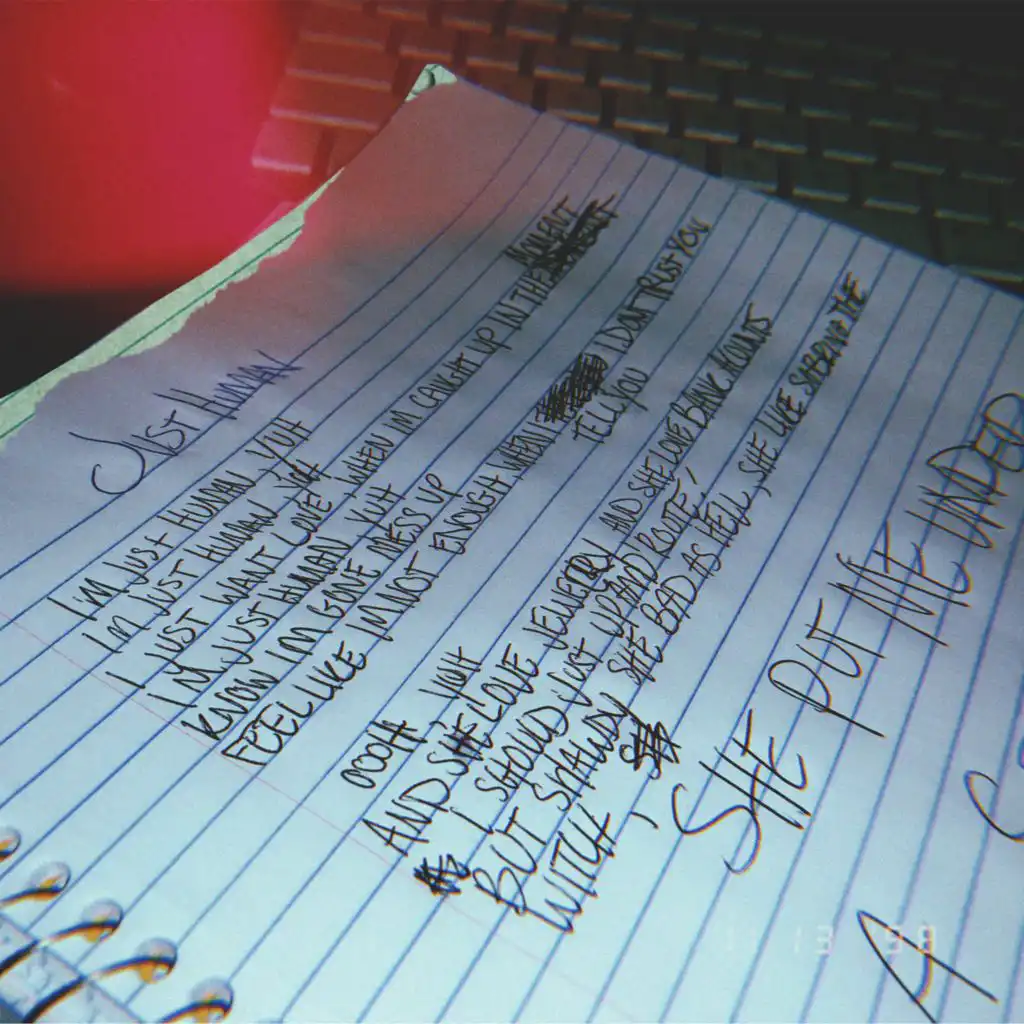 JUST HUMAN
I'M JUST HUMAN YUH
I'M JUST HUMAN YUH
I JUST WANT LOVE, WHEN IM CAUGHT UP IN THE MOMENT
I'M JUST HUMAN YUH
KNOW IM GONE MESS UP
FEEL LIKE IM NOT ENOUGH WHEN I TELL YOU I DONT TRUST YOU
OOOH YUH
AND SHE LOVE JEWELRY AND SHE LOVE BANK KOUNTS
I SHOULD JUST UP AND ROUTE,
BUT SHAWDY SHE BAD AS HELL, SHE LIKE SABRINA THE
WITCH,
SHE PUT ME UNDER
A S
11 13 '98